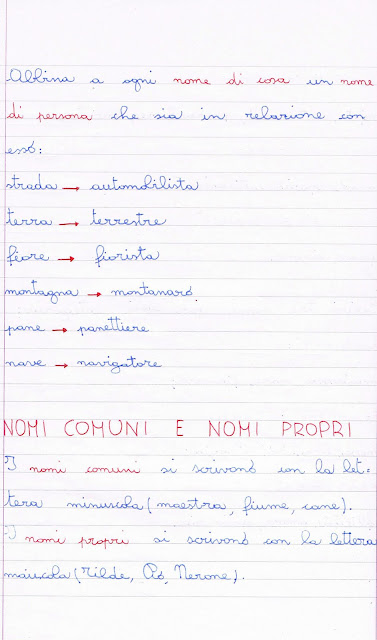 Abbina a ogni nome di cosa un nome
di persona che sia in relazione con
esso:
strada → automobilista
terra → terrestre
fiore → fiorista
montagna → montanaro
pane → panettiere
nave → navigatore
NOMI COMUNI E NOMI PROPRI
I nomi comuni si scrivono con la let=
tera minuscola (maestra, fiume, cane).
I nomi propri si scrivono con la lettera
maiuscola (Tilde, Pó, Nerone).